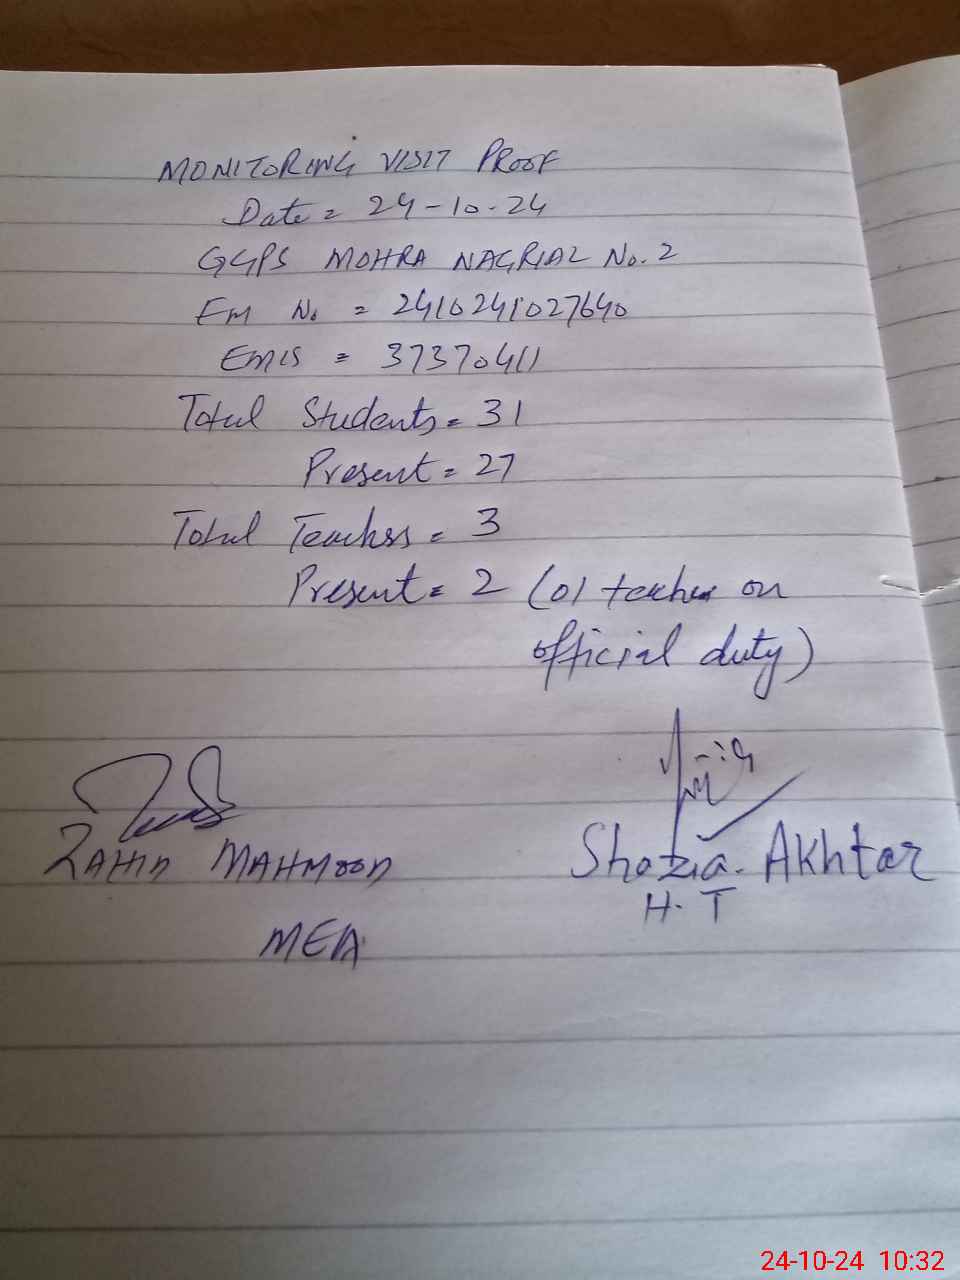 MONITORING VISIT PROOF
Date = 24-10-24
GGPS MOHRA NAGRIAL No. 2
Em No = 2410241027640
EMIS = 37370411
Total Students = 31
Present = 27
Total Teachers = 3
Present = 2 (01 teacher on
official duty)
ZAHID MAHMOOD
MEA
Shazia Akhtar
H. T
24-10-24 10:32